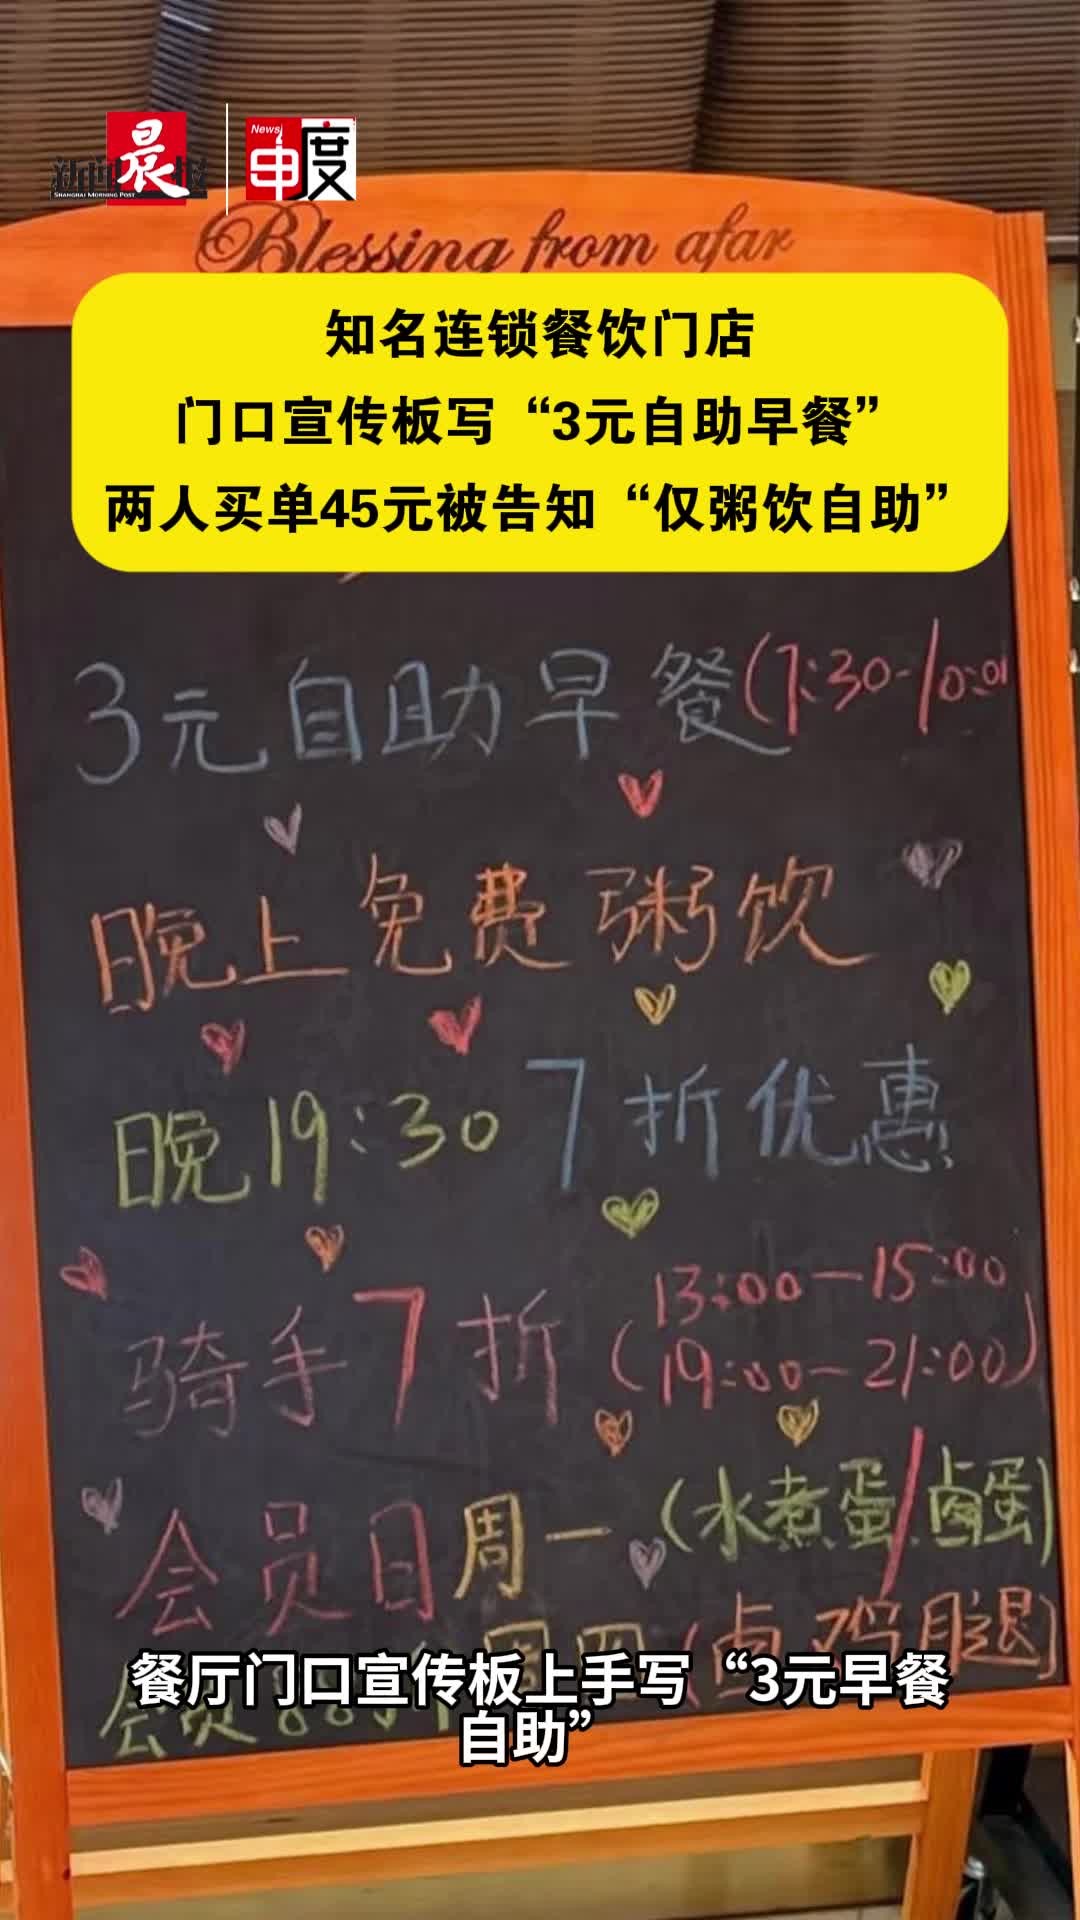 新闻晨报
SHANGHAI MORNING POST
News
申度
Blessing from afar
知名连锁餐饮门店
门口宣传板写“3元自助早餐”
两人买单45元被告知“仅粥饮自助”
3元自助早餐(7:30-10:0
晚上免费粥饮
晚19:30 7折优惠
骑手7折(13:00-15:00
19:00-21:00)
会员日周一(水煮蛋/卤蛋)
周四(卤鸡腿)
会员88折
餐厅门口宣传板上手写“3元早餐
自助”